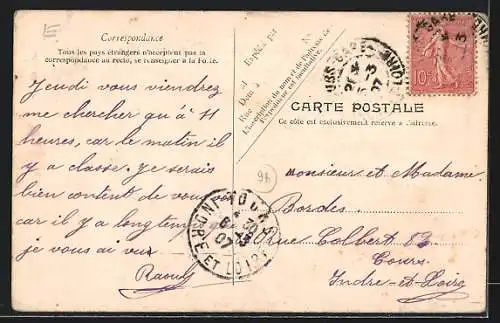 Correspondance
Tous les pays étrangers n'acceptent pas la
correspondance au recto, se renseigner à la Poste.
Jeudi vous viendrez
me chercher qu'à 11
heures, car le matin il
y a classe. Je serais
bien content de vous
car il y a longtemps
je vous ai vu
Raoul
Expédié par
M
Dans
Rue
L'inscription du nom et de l'adresse de
l'Expéditeur est facultative.
CARTE POSTALE
Ce côté est exclusivement réservé à l'adresse.
96
monsieur et Madame
Bordes.
Rue Colbert 83
Tours
Indre-et-Loire
10
ET LOIRE